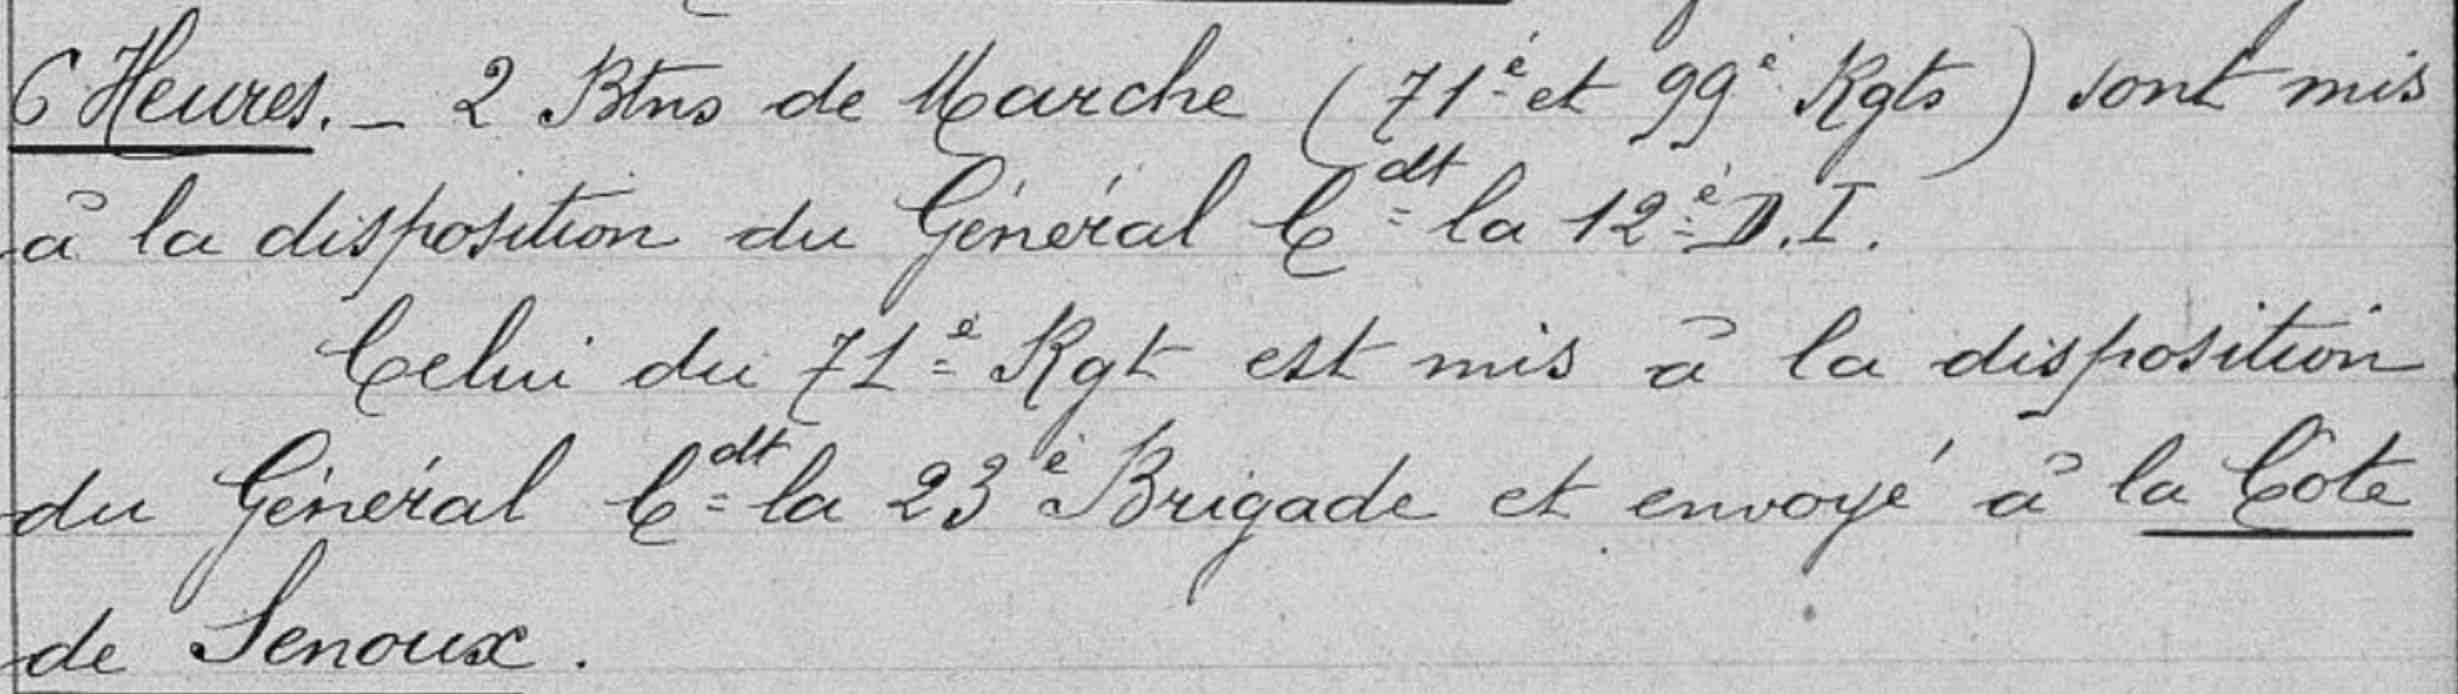 6 Heures. _ 2 Btns de Marche (71è et 99è Rgts) sont mis
à la disposition du Général Cdt la 12è D.I.
Celui du 71è Rgt est mis à la disposition
du Général Cdt la 23è Brigade et envoyé à la Côte
de Senoux.